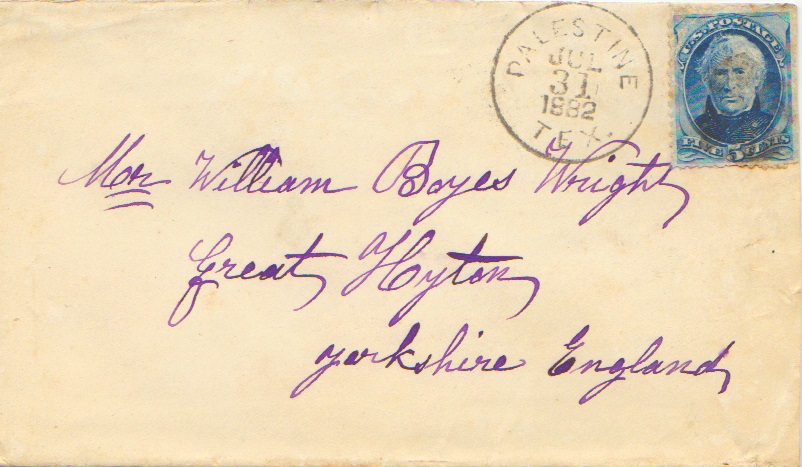 PALESTINE
JUL
31
1882
TEX.
U.S. POSTAGE
FIVE 5 CENTS
Mr William Boyes Wright
Great Hyton
Yorkshire England